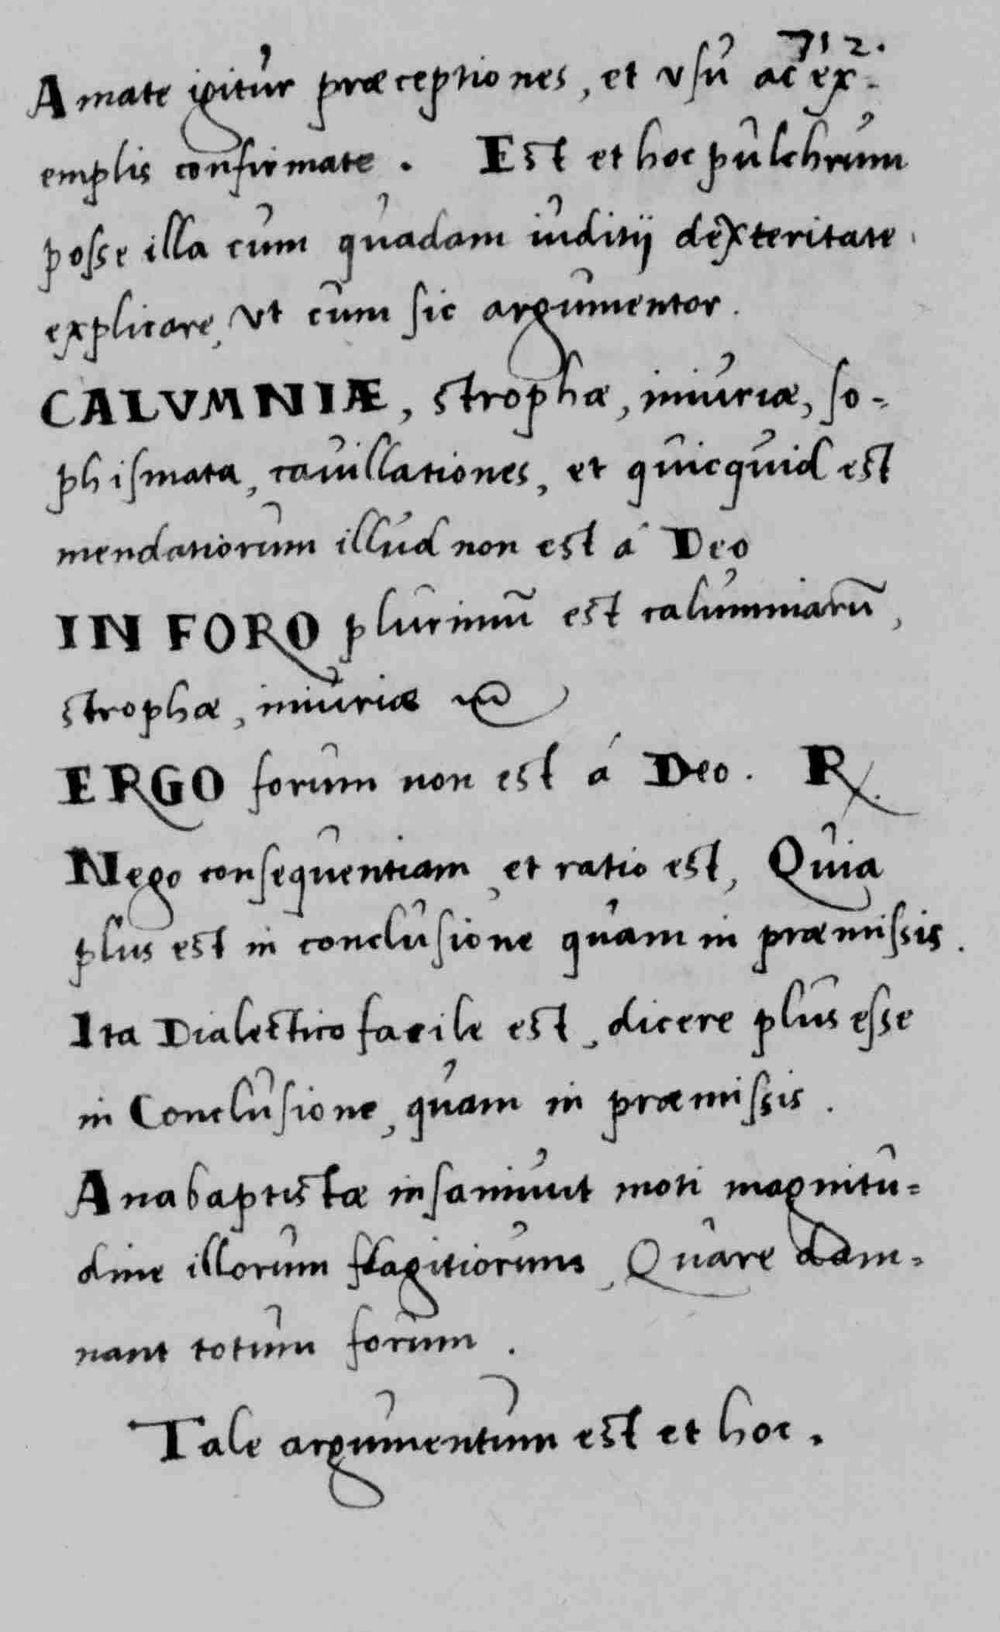 712.
Amate igitur præceptiones, et vsu ac ex-
emplis confirmate. Est et hoc pulchrum
posse illa cum quadam iuditij dexteritate
explicare, vt cum sic argumentor.
CALVMNIÆ, strophæ, iniuriæ, so-
phismata, cauillationes, et quicquid est
mendatiorum illud non est á Deo
IN FORO plurimū est calumniarū,
strophæ, iniuriæ
ERGO forum non est á Deo. R.
Nego consequentiam, et ratio est, Quia
plus est in conclusione quam in præmissis.
Ita Dialectico facile est, dicere plus esse
in Conclusione, quam in præmissis.
Anabaptistæ insaniunt moti magnitu-
dine illorum flagitiorum, Quare dam-
nant totum forum.
Tale argumentum est et hoc.